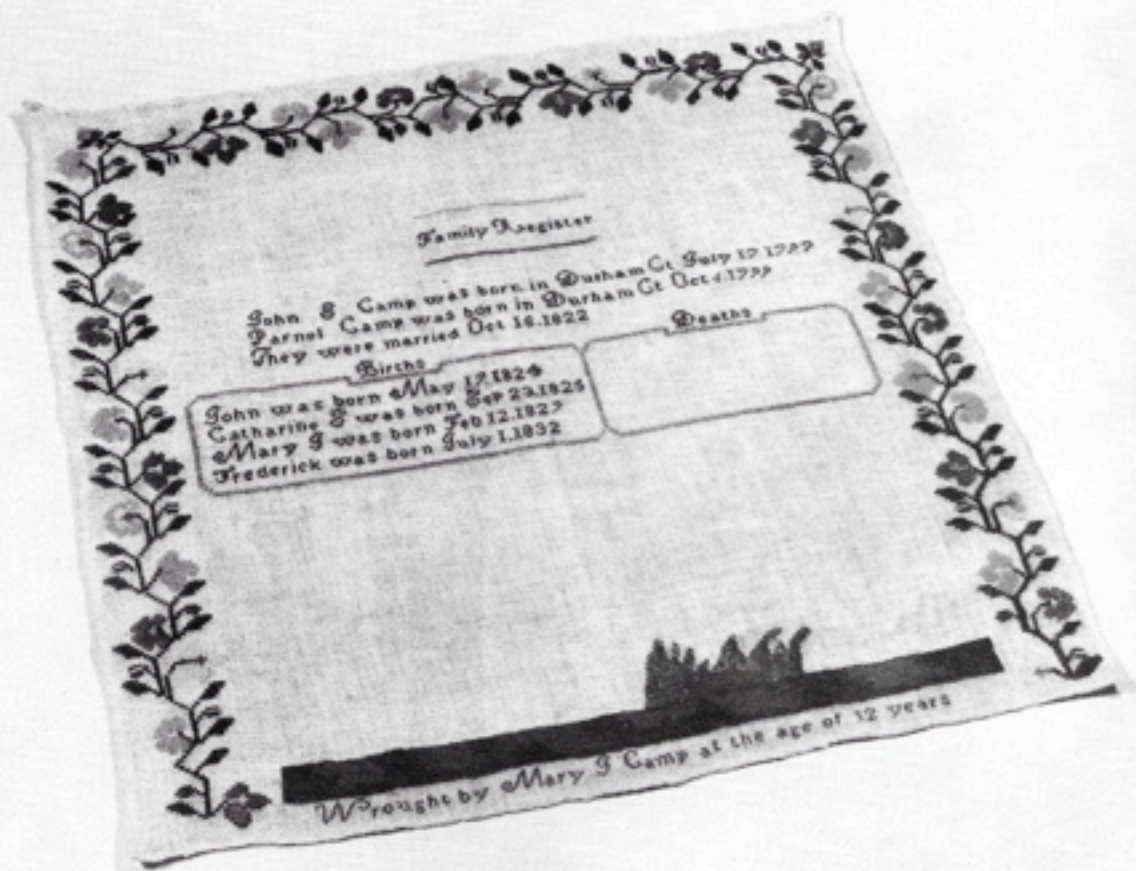 Family Register
John S Camp was born in Durham Ct July 17 1797
Parnol Camp was born in Durham Ct Oct 4 1799
They were married Oct 16.1822
Births
Deaths
John was born May 17.1824
Catharine S was born Sep 23.1825
Mary J was born Feb 12.1827
Frederick was born July 1.1832
Wrought by Mary J Camp at the age of 12 years